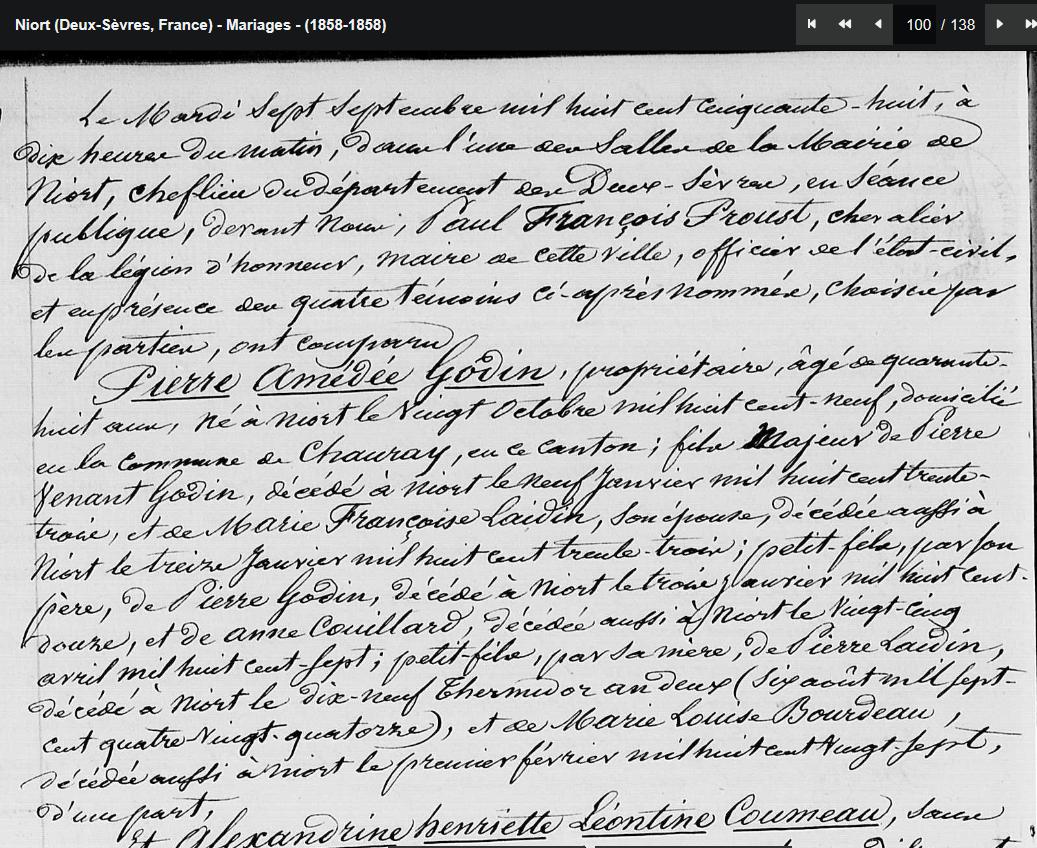 Niort (Deux-Sèvres, France) - Mariages - (1858-1858)
100 / 138
Le Mardi Sept Septembre mil huit cent cinquante-huit, à
dix heures du matin, dans l'une des Salles de la Mairie de
Niort, cheflieu du département des Deux-Sèvres, en Séance
publique, devant Nous, Paul François Proust, chevalier
de la légion d'honneur, maire de cette ville, officier de l'état-civil,
et en présence des quatre témoins ci-après nommés, choisis par
les parties, ont comparu
Pierre Amédée Godin, propriétaire, âgé de quarante-
huit ans, né à Niort le Vingt Octobre mil huit cent-neuf, domicilié
en la Commune de Chauray, en ce canton ; fils Majeur de Pierre
Venant Godin, décédé à Niort le neuf Janvier mil huit cent trente-
trois, et de Marie Françoise Laidin, son épouse, décédée aussi à
Niort le treize Janvier mil huit cent trente-trois ; petit-fils, par son
père, de Pierre Godin, décédé à Niort le trois Janvier mil huit cent-
douze, et de anne Couillard, décédée aussi à Niort le Vingt-cinq
avril mil huit cent-sept ; petit-fils, par sa mère, de Pierre Laidin,
décédé à Niort le dix-neuf Thermidor an deux (six août mil sept-
cent quatre-Vingt-quatorze), et de Marie Louise Bourdeau,
décédée aussi à Niort le premier février mil huit cent Vingt-sept,
d'une part,
Et Alexandrine henriette Léontine Coumeau, sans